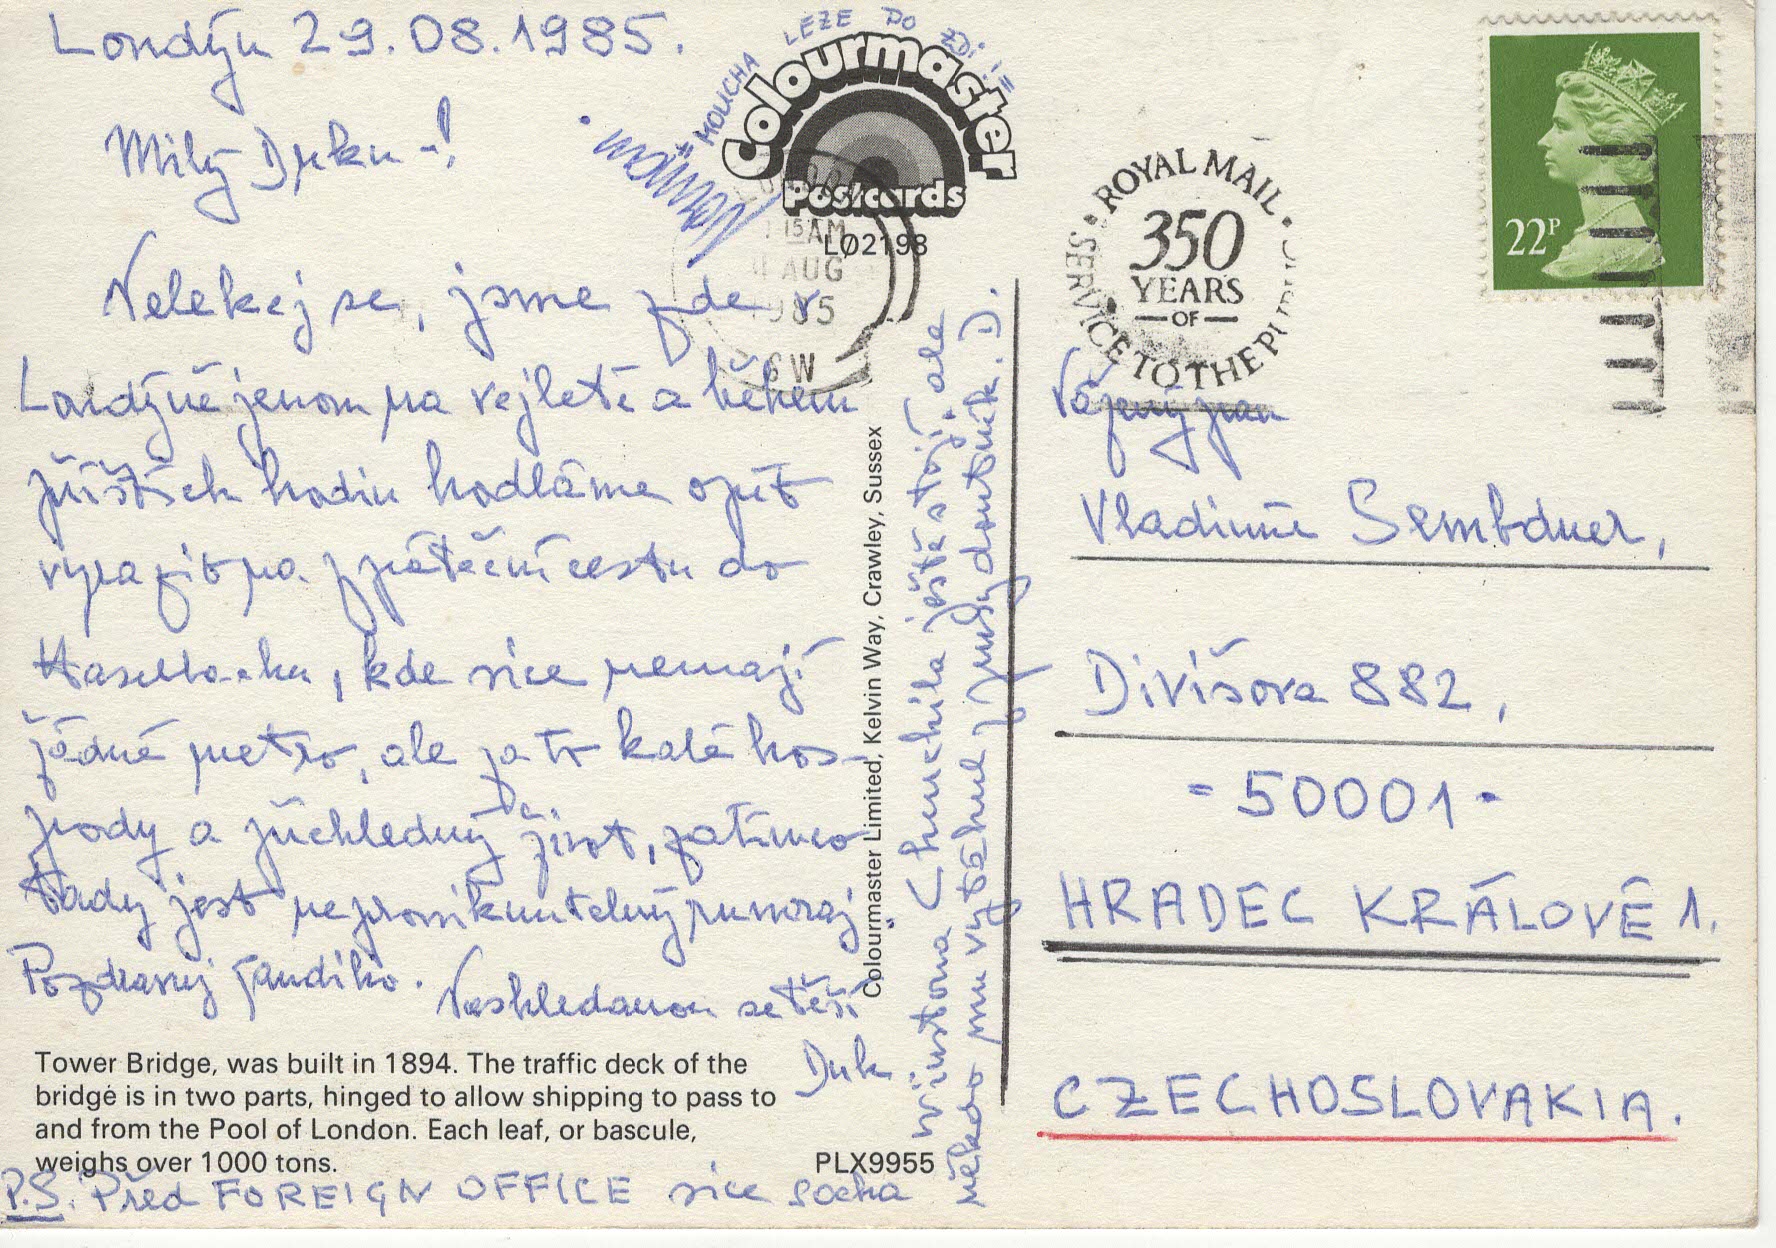 Londýn 29.08.1985.
Milý Duku -!
Nelekej se, jsme zde v
Londýně jenom na vejletě a během
příštích hodin hodláme opět
vyrazit na zpáteční cestu do
kde sice nemají
žádné metro, ale za to kalé hos-
pody a přehledný život, zatímco
tady jest neproniknutelný runoraj.
Pozdravuj Fandího. Naskledanou se těší
Duk
= MOUCHA LEZE PO ZDI !=
Colourmaster
Postcards
LØ2198
LONDON
15 AM
AUG
1985
SW
Tower Bridge, was built in 1894. The traffic deck of the
bridge is in two parts, hinged to allow shipping to pass to
and from the Pool of London. Each leaf, or bascule,
weighs over 1000 tons.
PLX9955
P.S. Před FOREIGN OFFICE sice socha
winstona Churchila ještě stojí, ale
někdo mu vytáhul z huby doutník. D.
Colourmaster Limited, Kelvin Way, Crawley, Sussex
ROYAL MAIL
350
YEARS
OF
SERVICE TO THE PUBLIC
22P
Vážený pan
Vladimír Sembdner,
Divišova 882,
- 50001 -
HRADEC KRÁLOVÉ 1.
CZECHOSLOVAKIA.